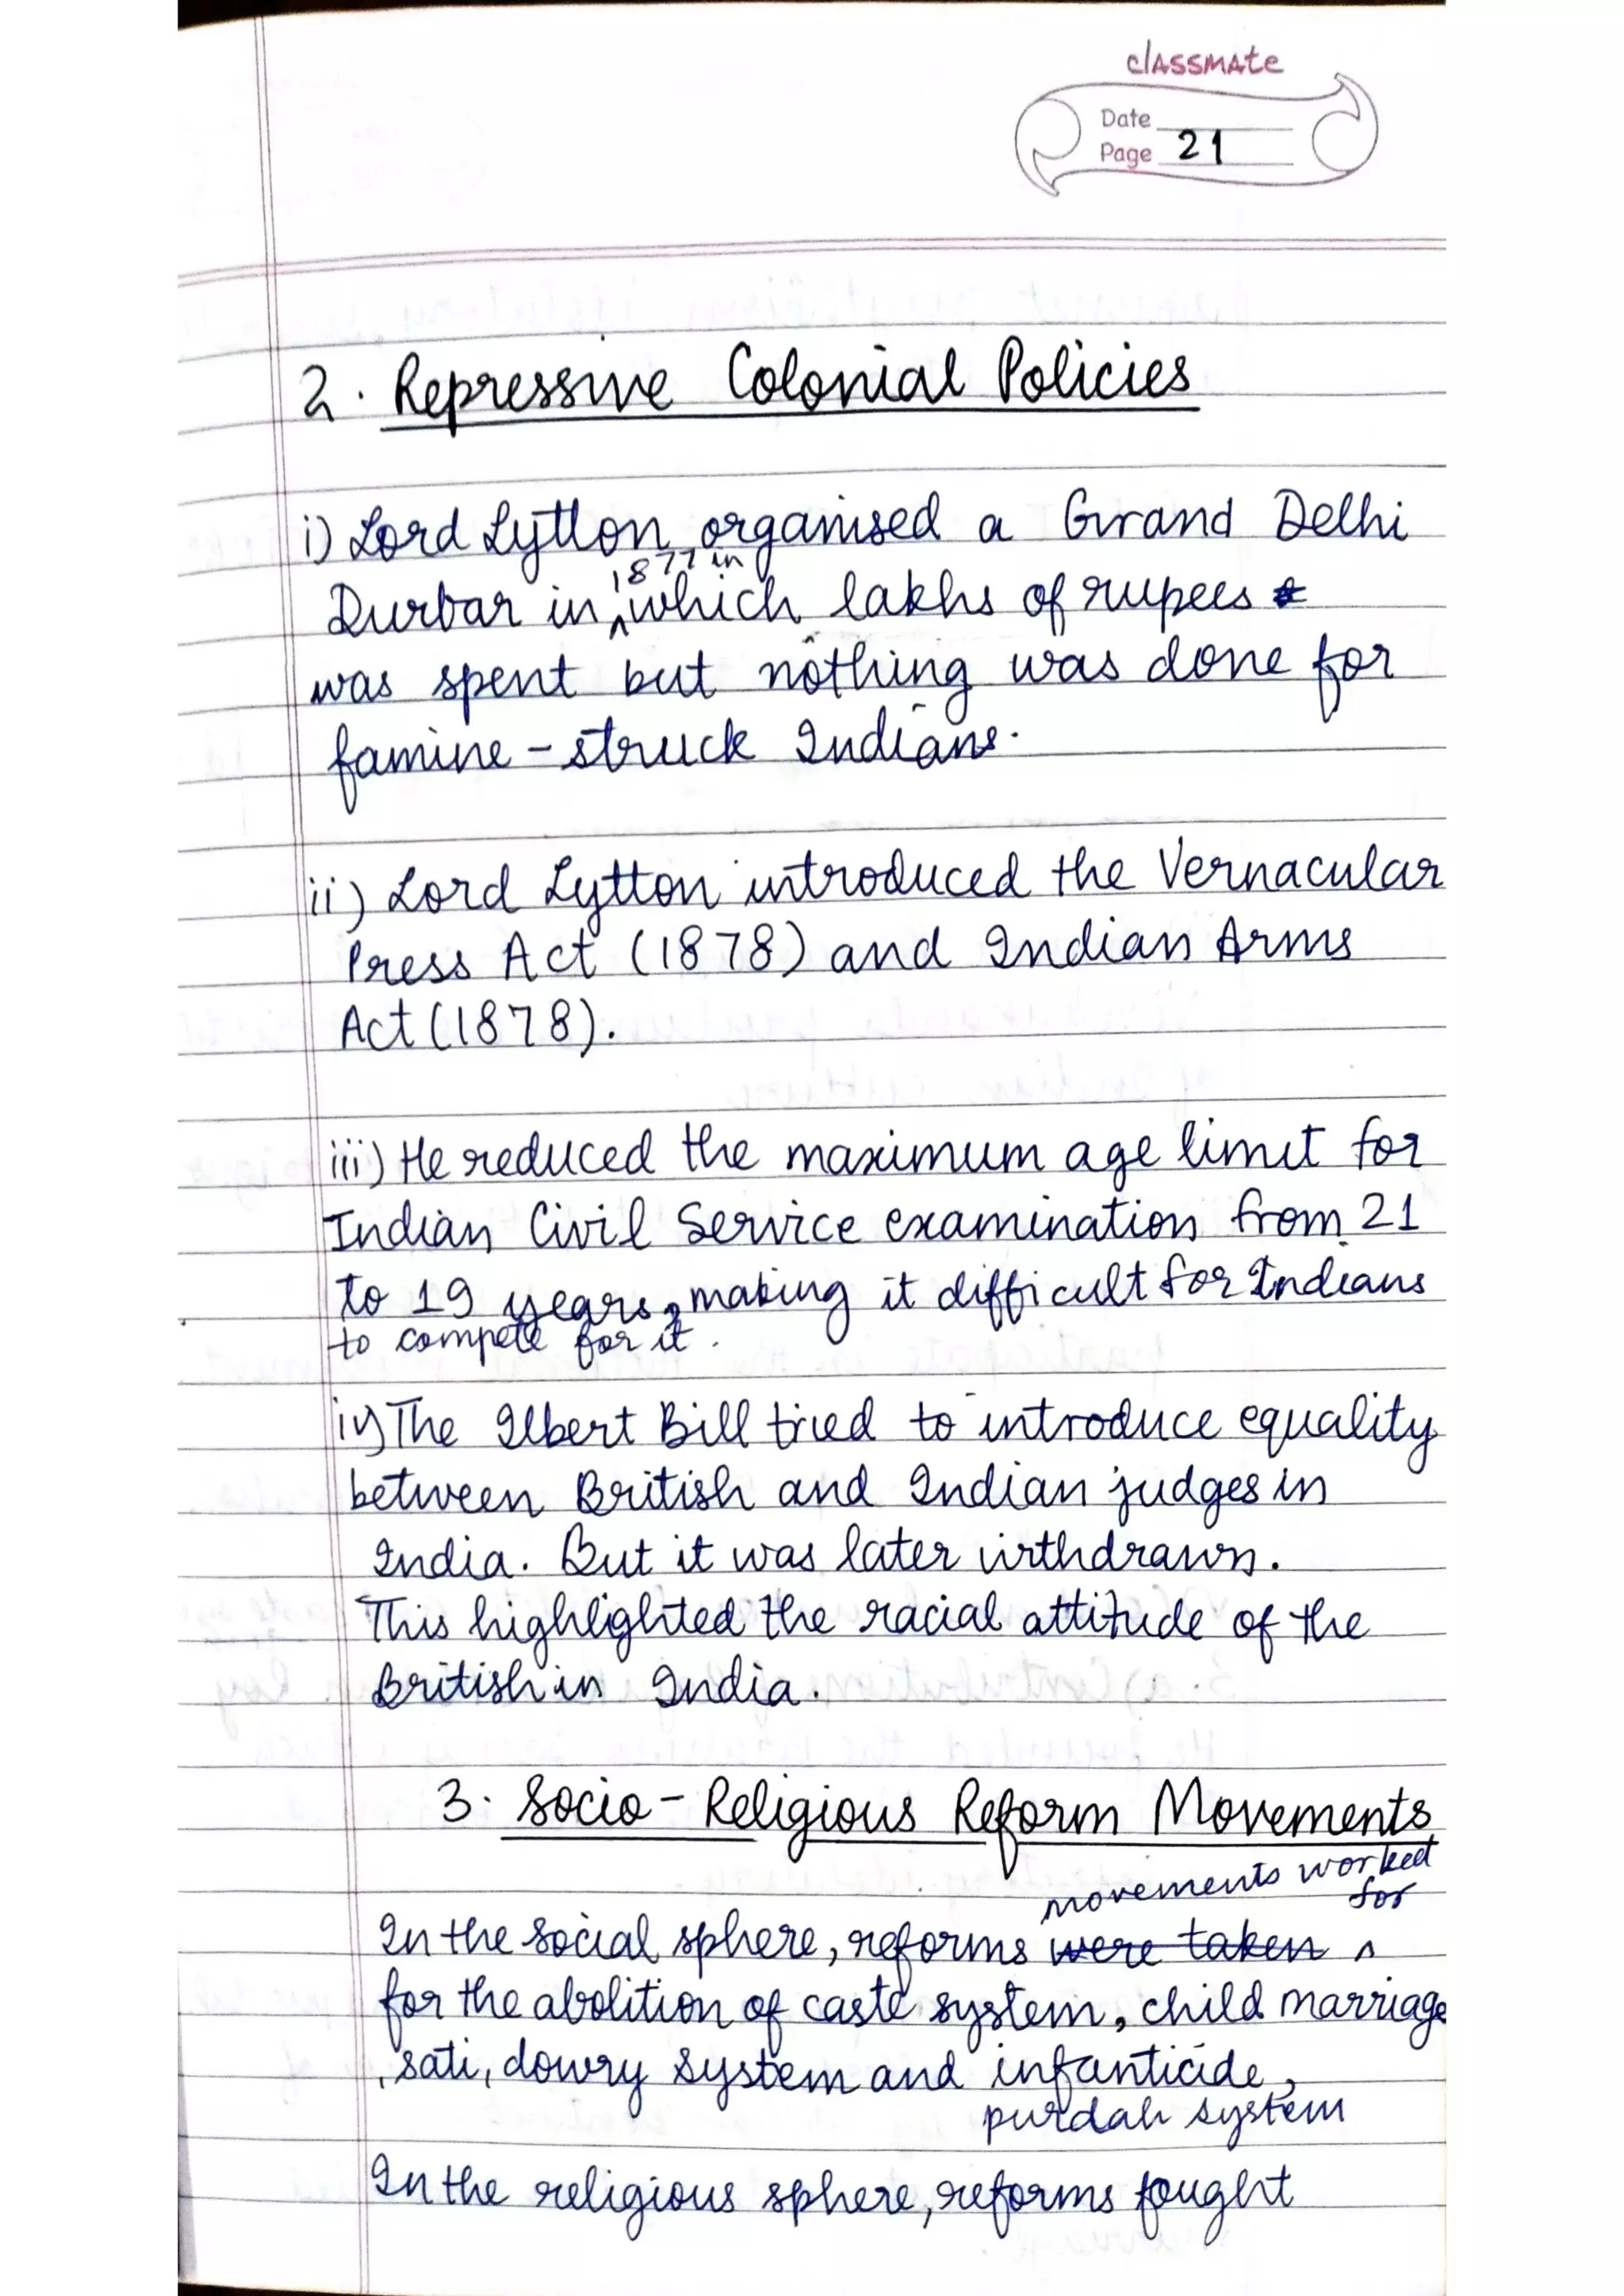 classmate
Date
Page 21
2. Repressive Colonial Policies
i) Lord Lytton organised a Grand Delhi
Durbar in 1877 in which lakhs of rupees
was spent but nothing was done for
famine-struck Indians.
ii) Lord Lytton introduced the Vernacular
Press Act (1878) and Indian Arms
Act (1878).
iii) He reduced the maximum age limit for
Indian Civil Service examination from 21
to 19 years, making it difficult for Indians
to compete for it.
iv) The Ilbert Bill tried to introduce equality
between British and Indian judges in
India. But it was later withdrawn.
This highlighted the racial attitude of the
British in India.
3. Socio-Religious Reform Movements
movements worked
for
In the social sphere, reforms were taken
for the abolition of caste system, child marriage
, sati, dowry system and infanticide,
purdah system
In the religious sphere, reforms fought